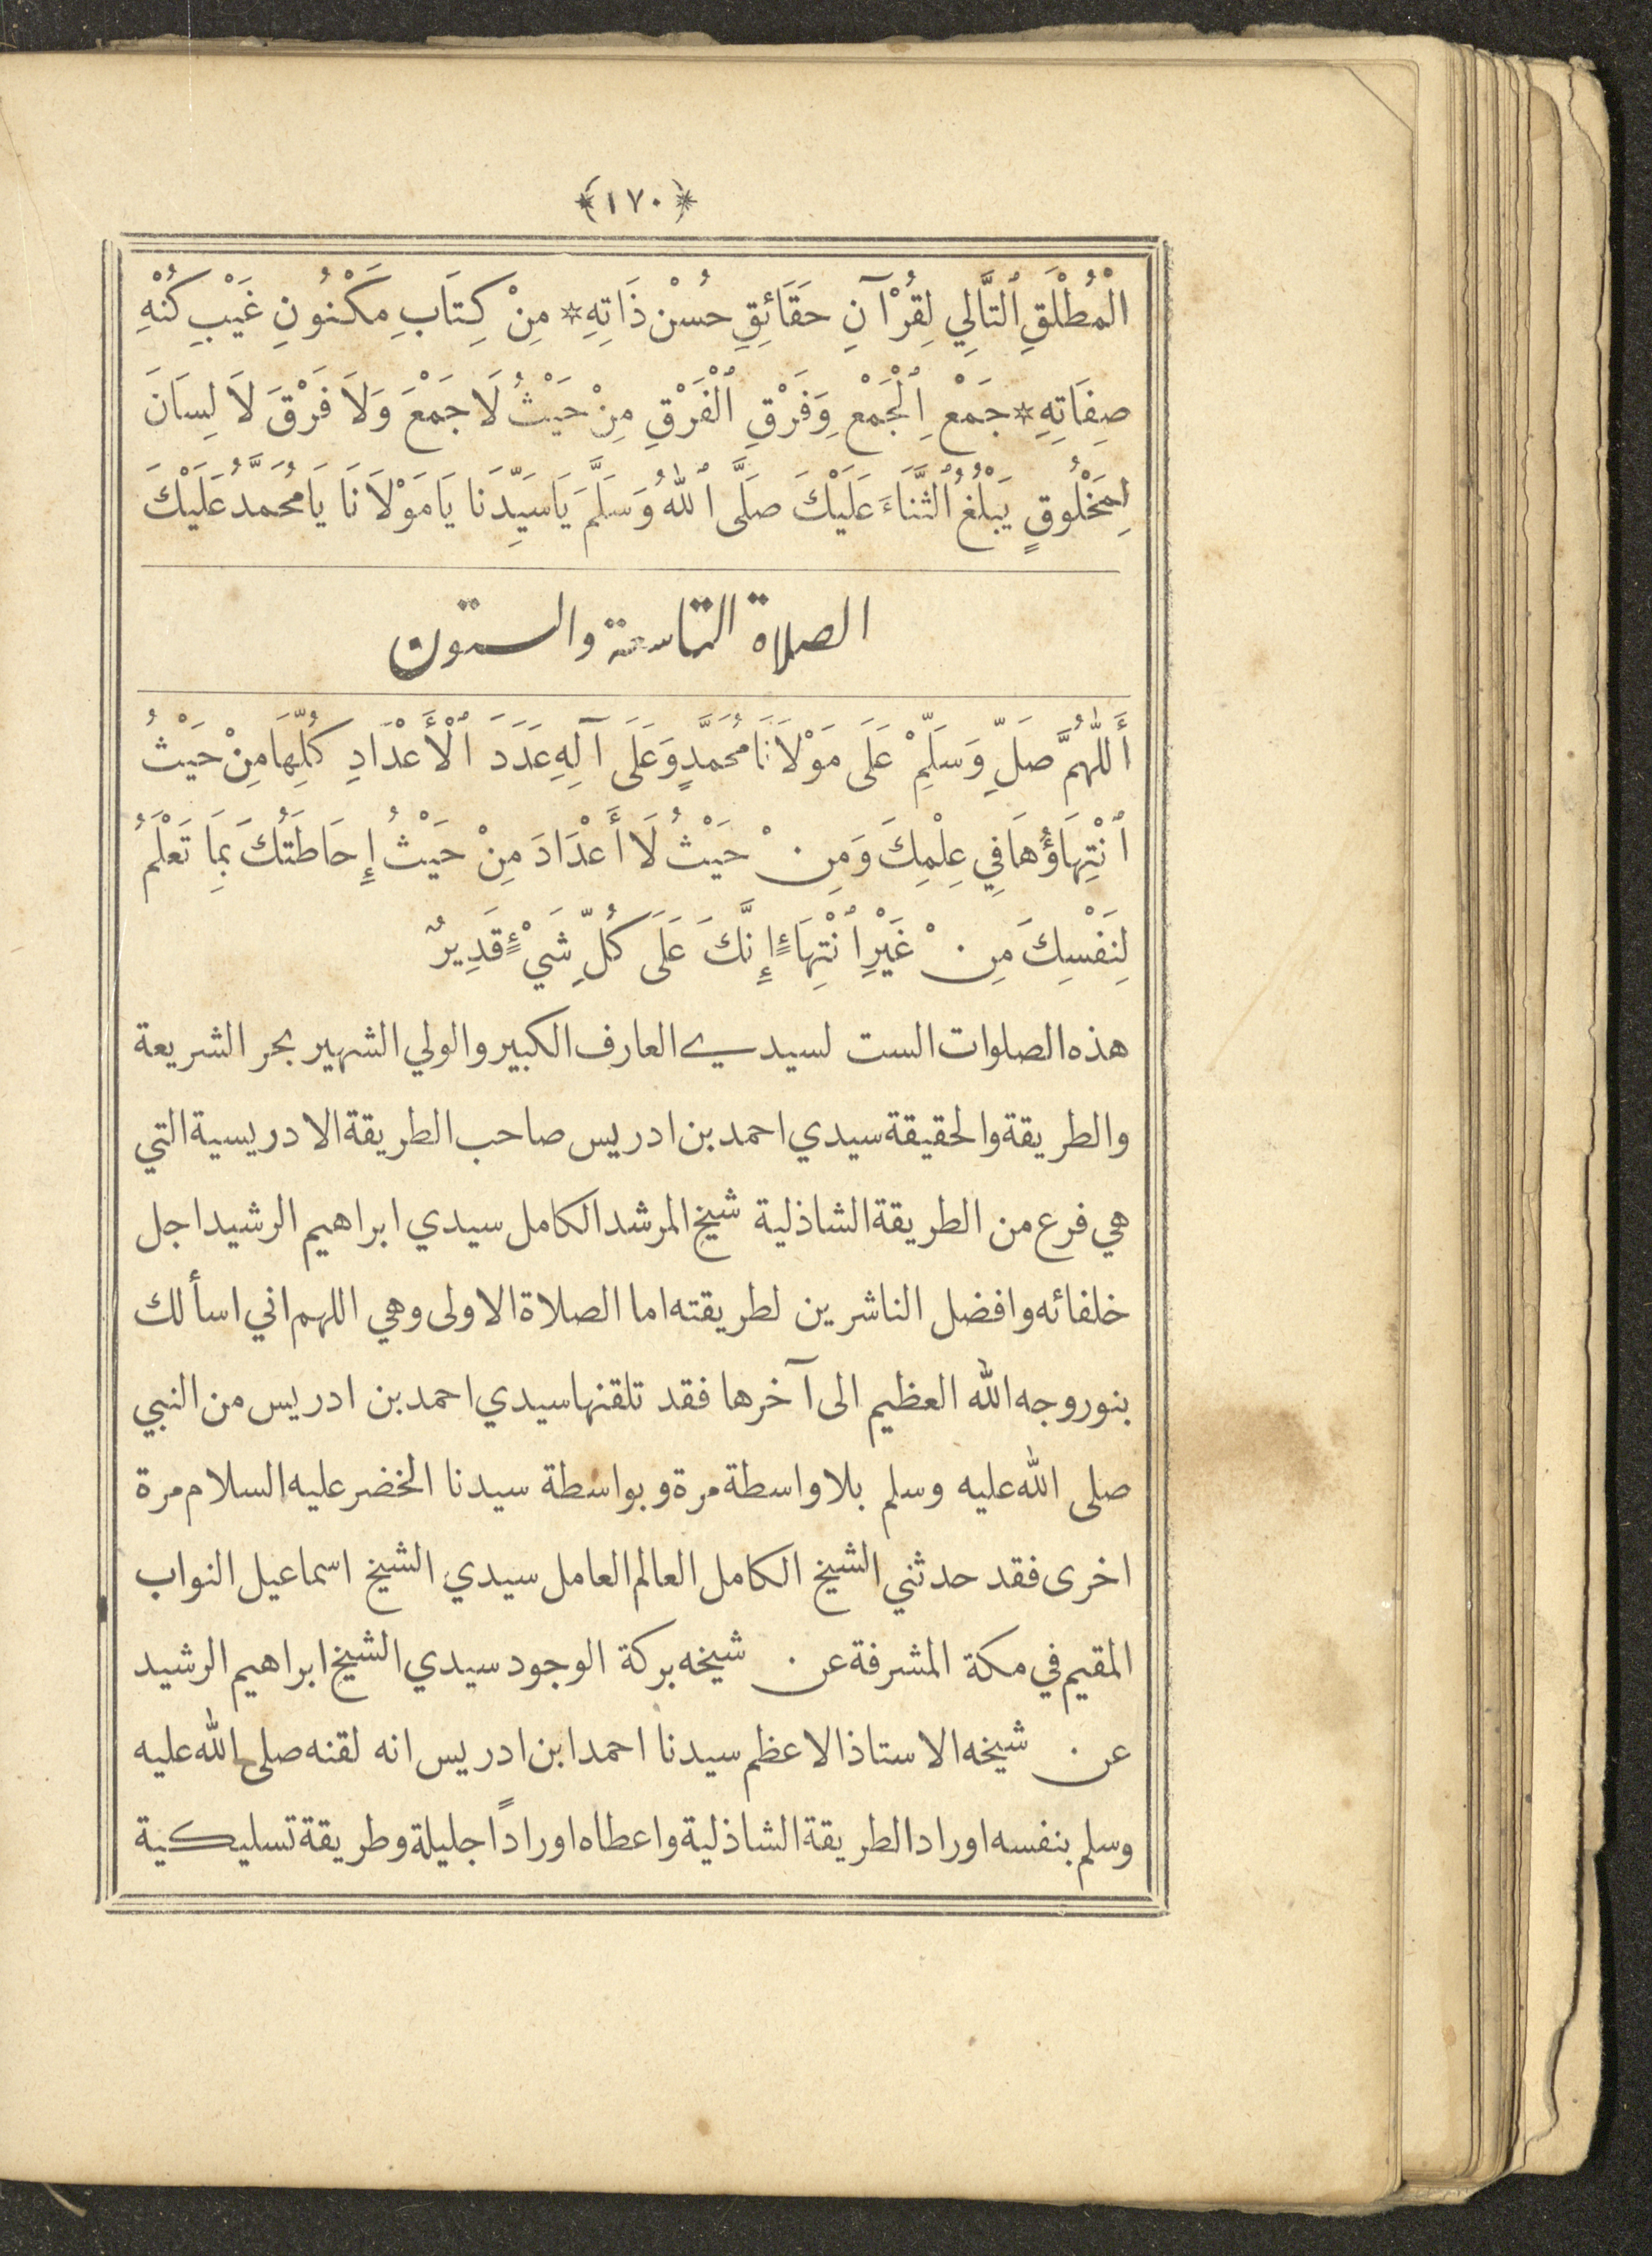 ﴿١٧٠﴾
الْمُطْلَقِ ٱلتَّالِي لِقُرْآنِ حَقَائِقِ حُسْنِ ذَاتِهِ * مِنْ كِتَابِ مَكْنُونِ غَيْبِ كُنْهِ
صِفَاتِهِ * جَمْعِ ٱلْجَمْعِ وَفَرْقِ ٱلْفَرْقِ مِنْ حَيْثُ لَا جَمْعَ وَلَا فَرْقَ لَا لِسَانَ
لِمَخْلُوقٍ يَبْلُغُ ٱلثَّنَاءَ عَلَيْكَ صَلَّى ٱللهُ وَسَلَّمَ يَا سَيِّدَنَا يَا مَوْلَانَا يَا مُحَمَّدُ عَلَيْكَ
الصلاة التاسعة والستون
أَللّٰهُمَّ صَلِّ وَسَلِّمْ عَلَى مَوْلَانَا مُحَمَّدٍ وَعَلَى آلِهِ عَدَدَ ٱلْأَعْدَادِ كُلِّهَا مِنْ حَيْثُ
ٱنْتِهَاؤُهَا فِي عِلْمِكَ وَمِنْ حَيْثُ لَا أَعْدَادَ مِنْ حَيْثُ إِحَاطَتُكَ بِمَا تَعْلَمُ
لِنَفْسِكَ مِنْ غَيْرِ ٱنْتِهَاءٍ إِنَّكَ عَلَى كُلِّ شَيْءٍ قَدِيرٌ
هذه الصلوات الست لسيدي العارف الكبير والولي الشهير بحر الشريعة
والطريقة والحقيقة سيدي احمد بن ادريس صاحب الطريقة الادريسية التي
هي فرع من الطريقة الشاذلية شيخ المرشد الكامل سيدي ابراهيم الرشيد اجل
خلفائه وافضل الناشرين لطريقته اما الصلاة الاولى وهي اللهم اني اسألك
بنور وجه الله العظيم الى آخرها فقد تلقنها سيدي احمد بن ادريس من النبي
صلى الله عليه وسلم بلا واسطة مرة وبواسطة سيدنا الخضر عليه السلام مرة
اخرى فقد حدثني الشيخ الكامل العالم العامل سيدي الشيخ اسماعيل النواب
المقيم في مكة المشرفة عن شيخه بركة الوجود سيدي الشيخ ابراهيم الرشيد
عن شيخه الاستاذ الاعظم سيدنا احمد ابن ادريس انه لقنه صلى الله عليه
وسلم بنفسه اوراد الطريقة الشاذلية واعطاه اورادًا جليلة وطريقة تسليكية